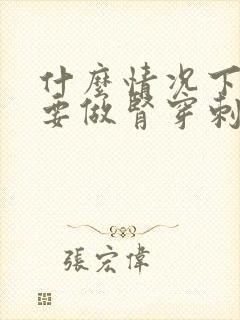 什麼情況下
要做腎穿刺
張宏偉